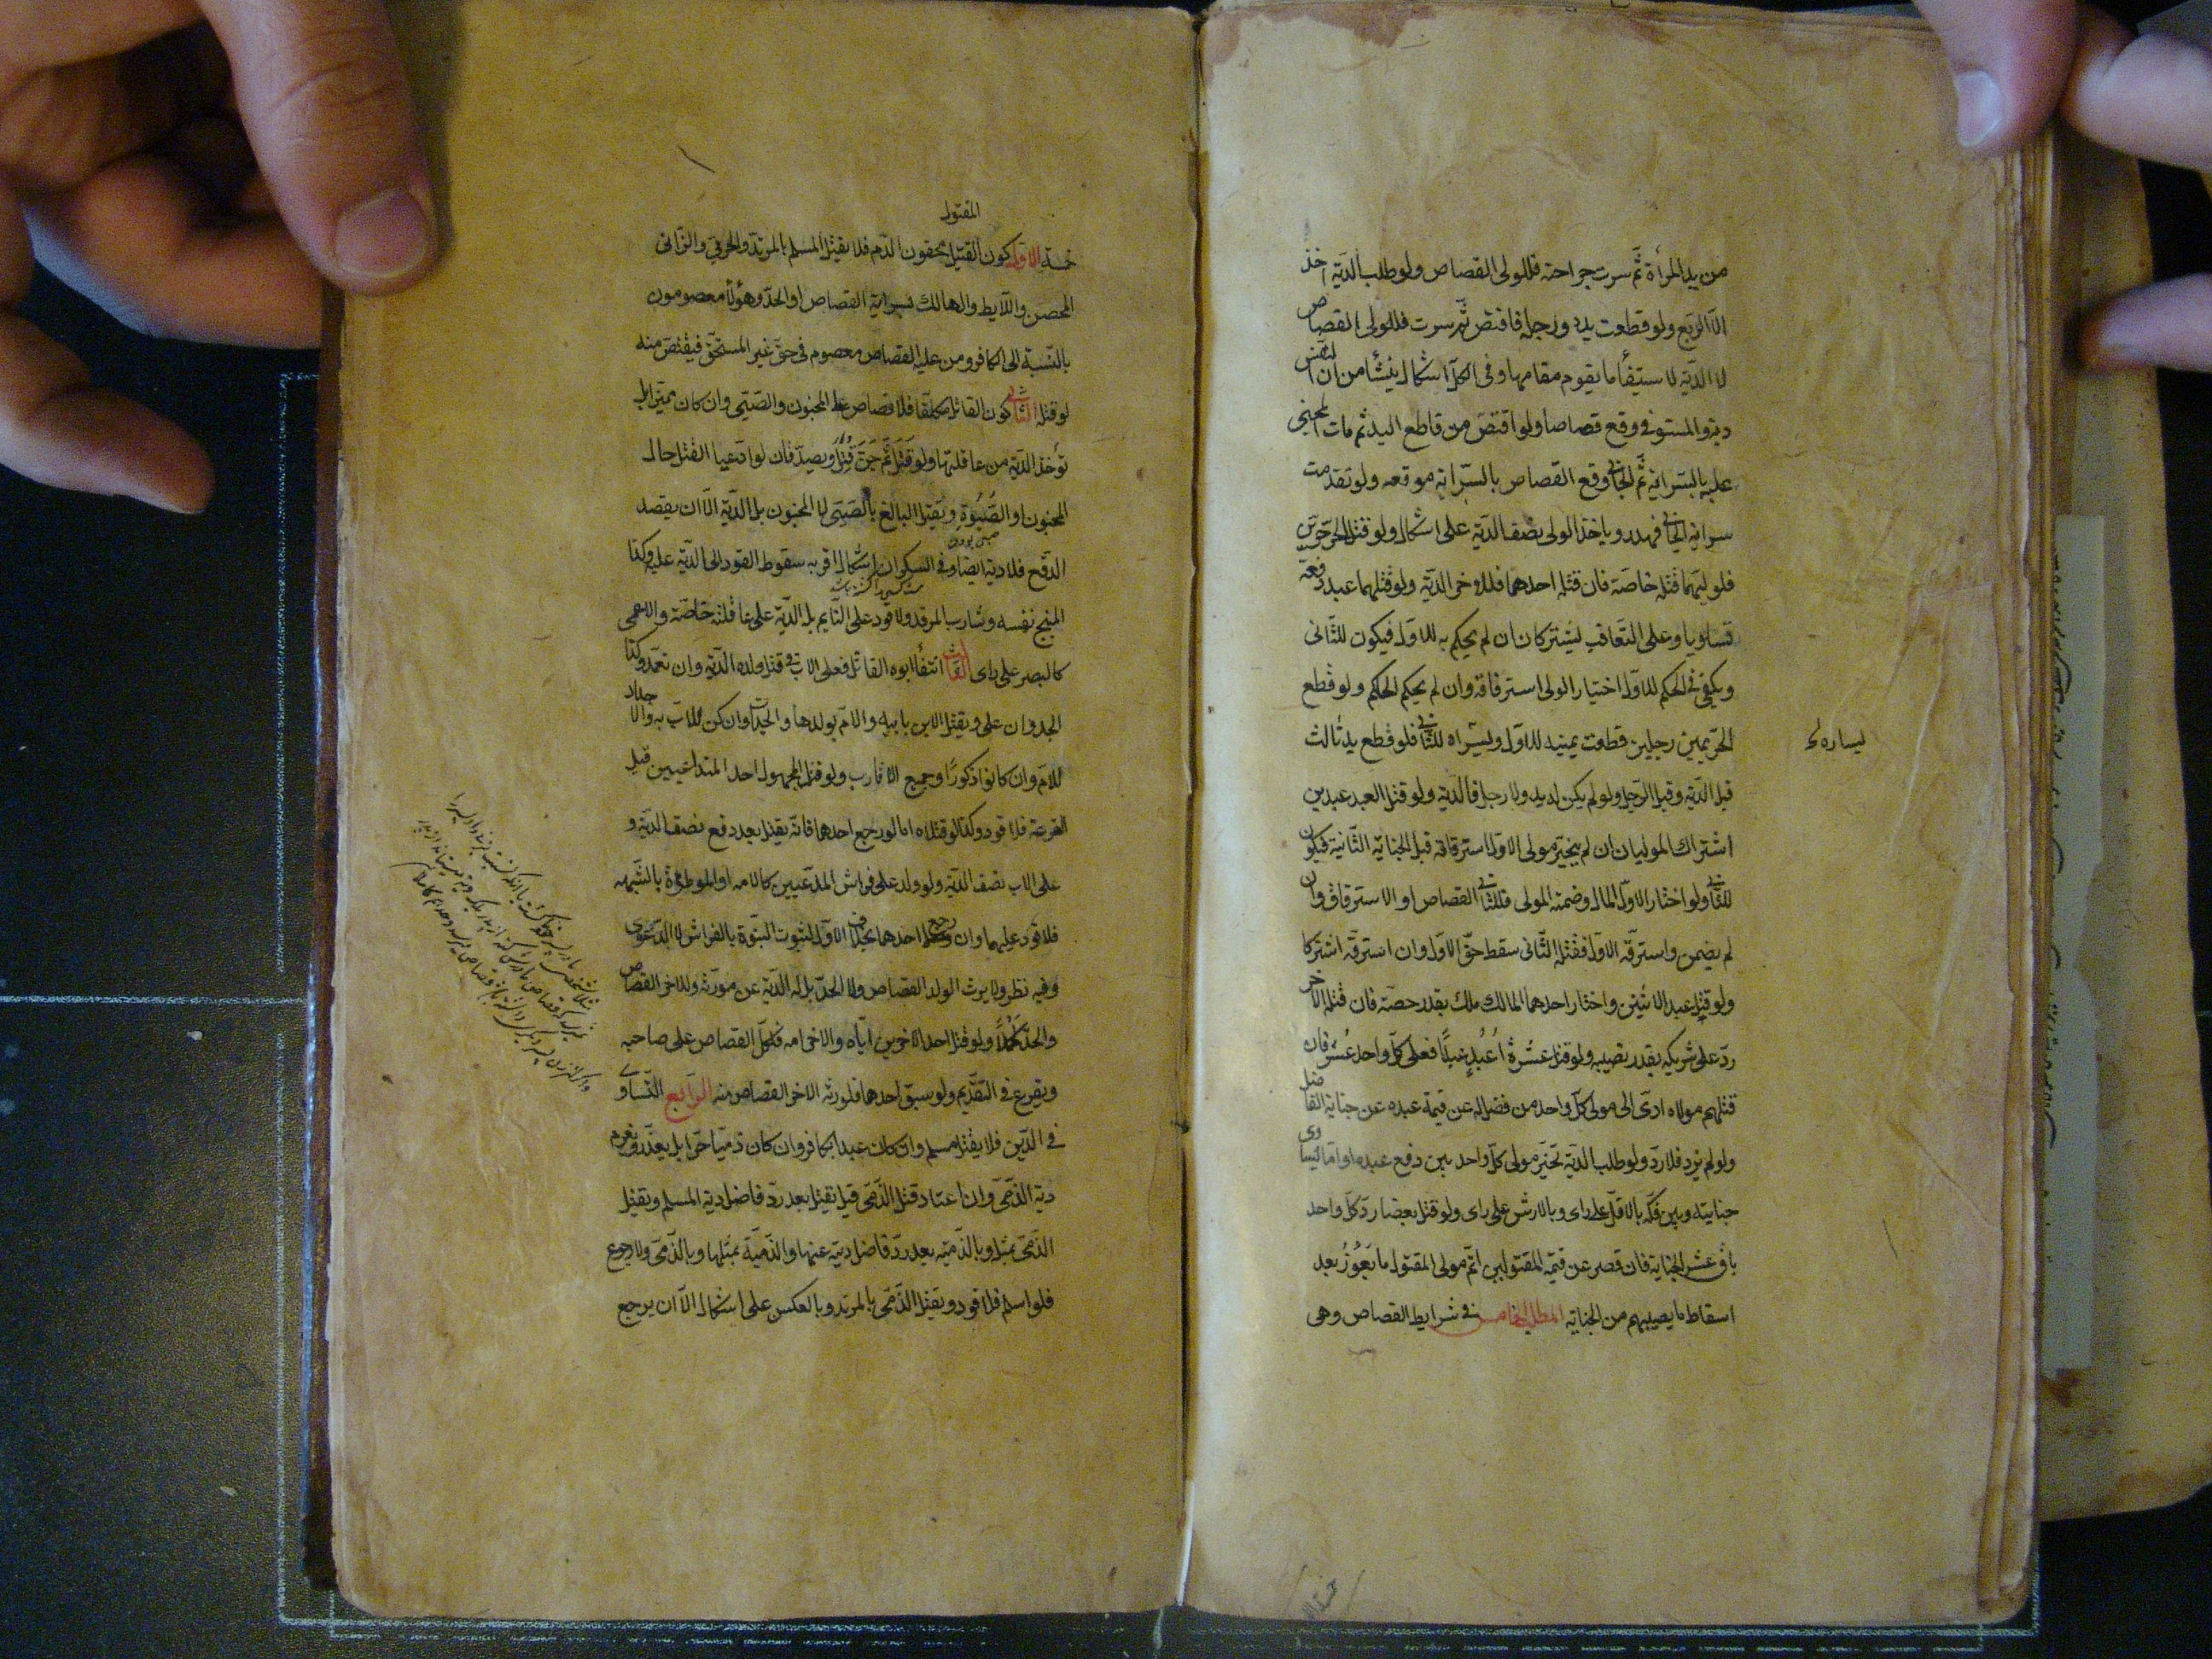 من يد المرأة ثم سرت جراحته فللولي القصاص ولو طلب الدية اخذ
الا الربع ولو قطعت يده ورجله فاقتص ثم سرت فللولى القصاص
لا الدية لاستيفاء ما يقوم مقامها وفى الكل اشكال ينشأ من ان للنفس
دية والمستوفى وقع قصاصا ولو اقتص من قاطع اليد ثم مات المجنى
عليه بالسراية ثم الجانى وقع القصاص بالسراية موقعه ولو تقدمت
سراية الجانى فهدر وياخذ الولى نصف الدية على اشكال ولو قتل الحر حرين
فلوليهما قتله خاصة فان قتله احدهما فللاخر الدية ولو قتلهما عبد دفعة
تساويا وعلى التعاقب يشتركان ان لم يحكم به للاول فيكون للثانى
ويكفى فى الحكم للاول اختيار الولى استرقاقه وان لم يحكم الحاكم ولو قطع
الحر يمين رجلين قطعت يمينه للاول ويسراه للثانى فلو قطع يد ثالث
يساره
قيل الدية وقيل الرجل ولو لم يكن له يد ولا رجل فالدية ولو قتل العبد عبدين
اشترك الموليان ان لم يختر مولى الاول استرقاقه قبل الجناية الثانية فيكون
للثانى ولو اختار الاول المال وضمنه المولى فللثانى القصاص او الاسترقاق وان
لم يضمن واسترقه الاول فقتله الثانى سقط حق الاول وان استرقه اشتركا
ولو قتل عبد الاثنين واختار احدهما المال ملك بقدر حصته فان قتله الاخر
رد على شريكه بقدر نصيبه ولو قتل عشرة اعبد عبدا فعلى كل واحد عشر فان
قتلهم مولاه ادى الى مولى كل واحد من فضل له عن قيمة عبده عن جناية الفاضل
ولو لم يزد فلا رد ولو طلب الدية تخير مولى كل واحد بين دفع عبده او ما يساوى
جنايته وبين فكه بالاقل على راى وبالارش على راى ولو قتل بعضا رد كل واحد
باقى عشر الجناية فان قصر عن قيمة المقتولين اتم مولى المقتول ما يعوز بعد
اسقاط ما يصيبهم من الجناية المطلب الخامس فى شرايط القصاص وهى
المقتول
خمسة الاول كون القتيل محقون الدم فلا يقتل المسلم بالمرتد والحربى والزانى
المحصن واللايط والهالك بسراية القصاص او الحد وهؤلاء معصومون
بالنسبة الى الكافر ومن عليه القصاص معصوم فى حق غير المستحق فيقتص منه
لو قتله الثانى كون القاتل مكلفا فلا قصاص على المجنون والصبى وان كان مميزا بل
تؤخذ الدية من عاقلتهما ولو قتل ثم جن قتل ويصدقان لو ادعيا القتل حال
المجنون او الصبوة ويقتل البالغ بالصبى لا المجنون بل الدية الا ان يقصد
الدفع فلا دية ايضا وفى السكران اشكال اقربه سقوط القود الى الدية عليه وكذا
المبنج نفسه وشارب المرقد ولا قود على النايم بل الدية على عاقلته خاصة والاعمى
كالبصير على راى الثالث انتفاء ابوة القاتل فعلى الاب فى قتل ولده الدية وان تعمد وكذا
الجد وان على ويقتل الابن بابيه والام بولدها والجدات وان كن للاب به والاجداد
للام وان كانوا ذكورا وجميع الاقارب ولو قتل المجهول احد المتداعيين قبل
القرعة فلا قود وكذا لو قتلاه اما لو رجع احدهما فانه يقتل بعد رد نصف الدية و
على الاب نصف الدية ولو ولد على فراش المدعيين كالامه او الموطؤة بالشبهه
فلا قود عليهما وان رجع احدهما بخلاف الاول لثبوت البنوة بالفراش لا الدعوى
وفيه نظر ولا يرث الولد القصاص ولا الحد بل له الدية عن مورثه وللاخر القصاص
والحد كملا ولو قتل احد الاخوين اباه والاخر امه فلكل القصاص على صاحبه
ويقرع فى التقديم ولو سبق احدهما فلورثه الاخر القصاص منه الرابع التساوى
فى الدين فلا يقتل مسلم وان كان عبدا بكافر وان كان ذميا حرا بل يعزر ويغرم
دية الذمى وان اعتاد قتل الذمى قيل يقتل بعد رد فاضل دية المسلم ويقتل
الذمى بمثله وبالذمية بعد رد فاضل ديته عنها والذمية بمثلها وبالذمى ولا رجوع
فلو اسلم فلا قود ويقتل الذمى بالمرتد وبالعكس على اشكال الا ان يرجع